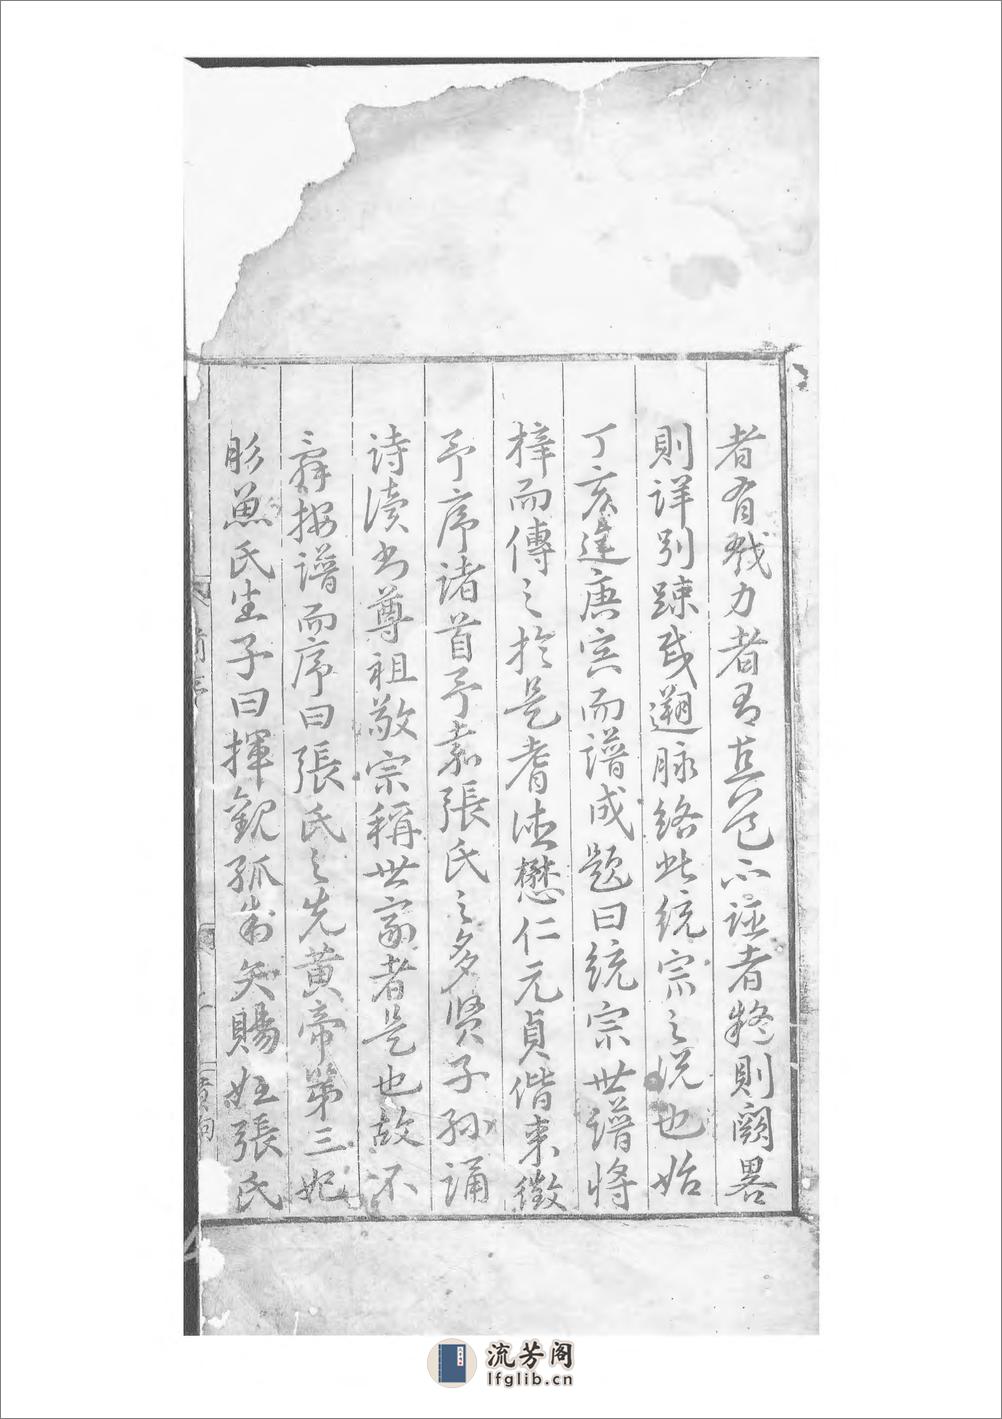 者有戮力者有 者 則闕畧
則詳別踈 遡脉絡此統宗之説也始
丁亥逹庚寅而譜成題曰統宗世譜將
梓而傳之於是耆德懋仁元貞偕来徵
予序諸首予嘉張氏之多賢子孫誦
詩讀书尊祖敬宗稱世家者是也故不
辞按譜而序曰張氏之先黄帝第三妃
肜魚氏生子曰揮觀弧制矢賜姓張氏
流芳阁
lfglib.cn